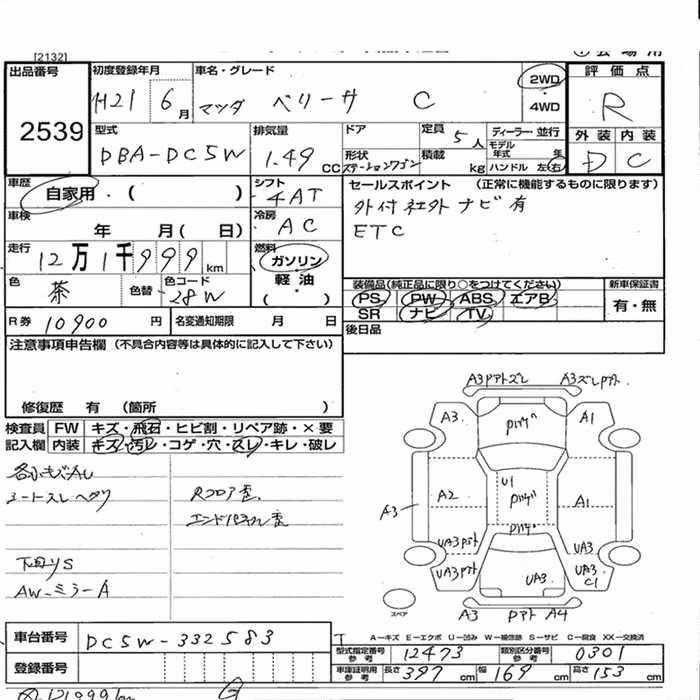 [2132]
出品番号
2539
初度登録年月
H21 6月
車名・グレード
マツダ ベリーサ C
2WD
・
4WD
評価点
R
外装 内装
D C
型式
DBA-DC5W
排気量
1.49 CC
ドア
形状
ステーションワゴン
定員 5人
積載 kg
ディーラー・並行
モデル年式 年
ハンドル 左・右
車歴
自家用・( )
シフト
4AT
車検
年 月( 日)
冷房
AC
走行
12万1千999 km
燃料
ガソリン
・
軽油
( )
色
茶
色替
色コード
28W
R券 10900 円
名変通知期限 月 日
セールスポイント (正常に機能するものに限ります)
外付社外ナビ有
ETC
装備品(純正品に限り○をつけてください)
PS PW ABS エアB
SR ナビ TV
新車保証書
有・無
後日品
注意事項申告欄 (不具合内容等は具体的に記入して下さい)
修復歴 有 (箇所 )
検査員 FW キズ・飛石・ヒビ割・リペア跡・×要
記入欄 内装 キズ・汚レ・コゲ・穴・スレ・キレ・破レ
各小キズ凹
シートスレヘタリ
Rフロア歪
エンドパネル歪
下回りS
AW-ミラーA
A3
A3
A1
A3
A2
U1
A1
UA3
UA3
UA3
UA3
UA3
C1
A3
A4
スペア
A-キズ E-エクボ U-凹み W-補修跡 S-サビ C-腐食 XX-交換済
車台番号
DC5W-332583
登録番号
型式指定番号
参考
12473
類別区分番号
参考
0301
車庫証明用
参考
長さ 397 cm
幅 169 cm
高さ 153 cm